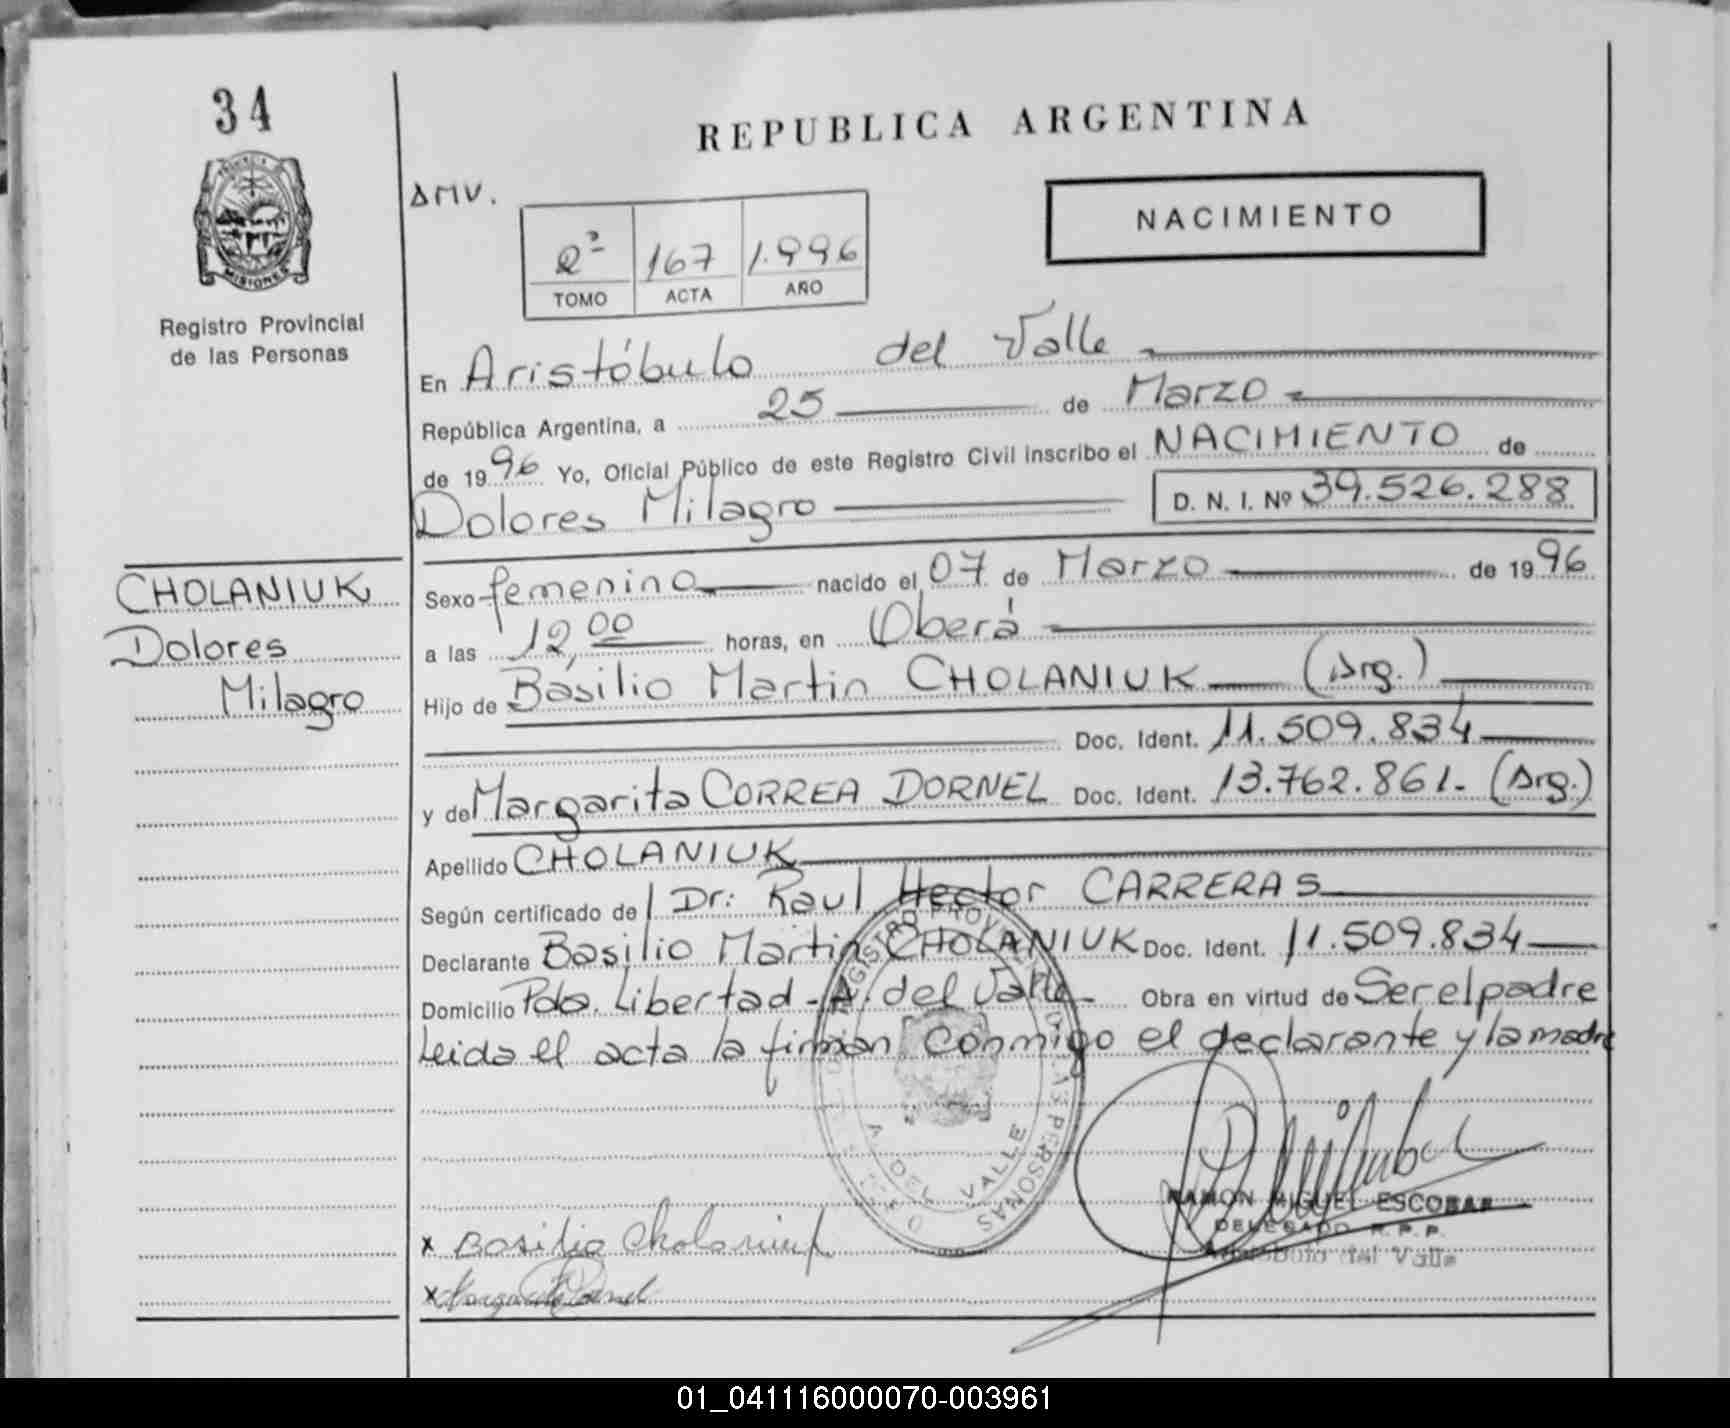 34
REPUBLICA ARGENTINA
MISIONES
Registro Provincial
de las Personas
AMV.
2º 167 1.996
TOMO ACTA AÑO
NACIMIENTO
En Aristóbulo del Valle
República Argentina, a 25 de Marzo
de 1996 Yo, Oficial Público de este Registro Civil inscribo el NACIMIENTO de
Dolores Milagro D. N. I. Nº 39.526.288
CHOLANIUK
Dolores
Milagro
Sexo femenino nacido el 07 de Marzo de 1996
a las 12,00 horas, en Oberá
Hijo de Basilio Martin CHOLANIUK (Arg.)
Doc. Ident. 11.509.834
y de Margarita CORREA DORNEL Doc. Ident. 13.762.861.- (Arg.)
Apellido CHOLANIUK
Según certificado de Dr: Raul Hector CARRERAS
Declarante Basilio Martin CHOLANIUK Doc. Ident. 11.509.834
Domicilio Pdo. Libertad - A. del Valle - Obra en virtud de Ser el padre
Leida el acta la firman conmigo el declarante y la madre
REGISTRO PROVINCIAL DE LAS PERSONAS
A. DEL VALLE
RAMON MIGUEL ESCOBAR
DELEGADO R. P. P.
Aristobulo del Valle
x Basilio Cholaniuk
x Margarita Dornel
01_041116000070-003961